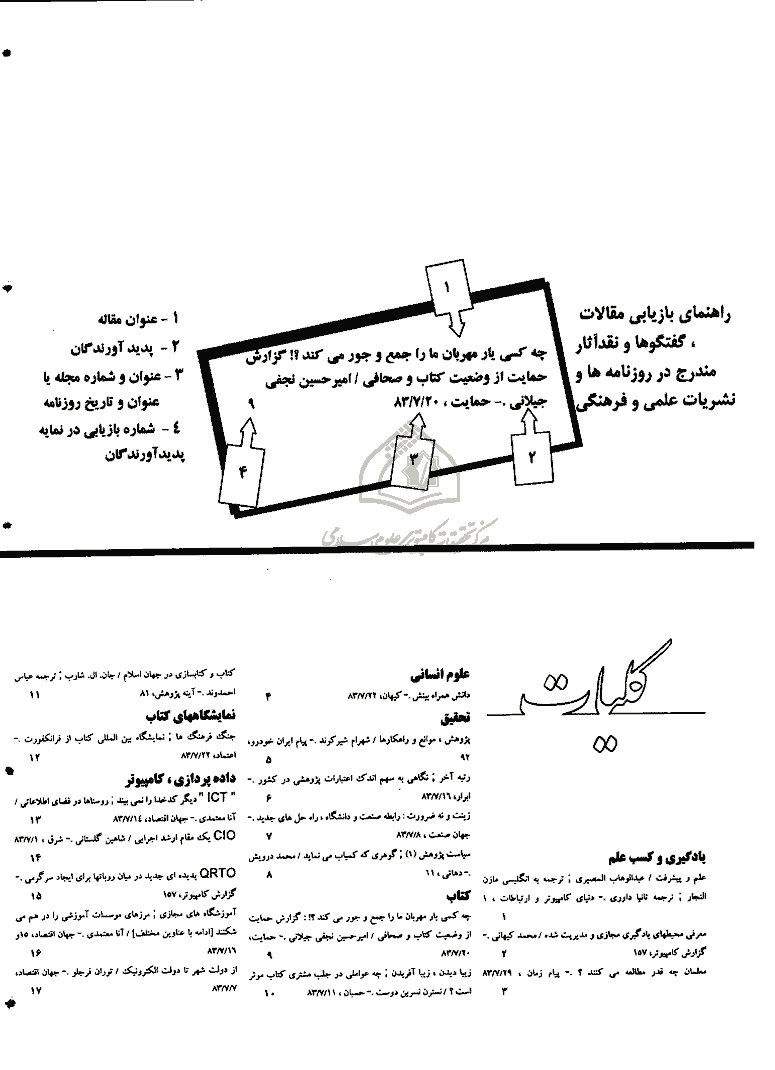 راهنمای بازیابی مقالات
، گفتگوها و نقدآثار
مندرج در روزنامه ها و
نشریات علمی و فرهنگی
۱
چه کسی یار مهربان ما را جمع و جور می کند ؟! گزارش
حمایت از وضعیت کتاب و صحافی / امیرحسین نجفی
جیلانی .- حمایت ، ۸۳/۷/۲۰ ۹
۲
۳
۴
۱ - عنوان مقاله
۲ - پدید آورندگان
۳ - عنوان و شماره مجله یا
عنوان و تاریخ روزنامه
٤ - شماره بازیابی در نمایه
پدیدآورندگان
مرکز تحقیقات کامپیوتری علوم اسلامی
کلیات
یادگیری و کسب علم
علم و پیشرفت / عبدالوهاب المصیری ; ترجمه به انگلیسی مازن
النجار ; ترجمه تانیا داوری .- دنیای کامپیوتر و ارتباطات ، ۱
۱
معرفی محیطهای یادگیری مجازی و مدیریت شده / محمد کیهانی .-
گزارش کامپیوتر، ۱۵۷ ۲
معلمان چه قدر مطالعه می کنند ؟ .- پیام زمان ، ۸۳/۷/۲۹
۳
علوم انسانی
دانش همراه بینش .- کیهان، ۸۳/۷/۲۲ ۴
تحقیق
پژوهش ، موانع و راهکارها / شهرام شیرکوند .- پیام ایران خودرو،
۹۲ ۵
رتبه آخر ; نگاهی به سهم اندک اعتبارات پژوهشی در کشور .-
ابرار، ۸۳/۷/۱٦ ۶
زینت و نه ضرورت : رابطه صنعت و دانشگاه ، راه حل های جدید .-
جهان صنعت ، ۸۳/۷/۸ ۷
سیاست پژوهش (۱) ; گوهری که کمیاب می نماید / محمد درویش
.- دهاتی ، ۱۱ ۸
کتاب
چه کسی یار مهربان ما را جمع و جور می کند ؟! : گزارش حمایت
از وضعیت کتاب و صحافی / امیرحسین نجفی جیلانی .- حمایت،
۸۳/۷/۲۰ ۹
زیبا دیدن ، زیبا آفریدن ; چه عواملی در جلب مشتری کتاب موثر
است ؟ / نسترن نسرین دوست .- حسبان ، ۸۳/۷/۱۱ ۱۰
کتاب و کتابسازی در جهان اسلام / جان. ال. شارب ; ترجمه عباس
احمدوند .- آینه پژوهش، ۸۱ ۱۱
نمایشگاههای کتاب
جنگ فرهنگ ها ; نمایشگاه بین المللی کتاب از فرانکفورت .-
اعتماد، ۸۳/۷/۲۲ ۱۲
داده پردازی ، کامپیوتر
" ICT " دیگر کدخدا را نمی بیند ; روستاها در فضای اطلاعاتی /
آنا معتمدی .- جهان اقتصاد، ۸۳/۷/۱٤ ۱۳
CIO یک مقام ارشد اجرایی / شاهین گلستانی .- شرق ، ۸۳/۷/۱
۱۴
QRTO پدیده ای جدید در میان روباتها برای ایجاد سرگرمی .-
گزارش کامپیوتر، ۱۵۷ ۱۵
آموزشگاه های مجازی ; مرزهای موسسات آموزشی را در هم می
شکنند [ادامه با عناوین مختلف] / آنا معتمدی .- جهان اقتصاد، ۱۵و
۸۳/۷/۱٦ ۱۶
از دولت شهر تا دولت الکترونیک / توران قرجلو .- جهان اقتصاد،
۸۳/۷/۷ ۱۷